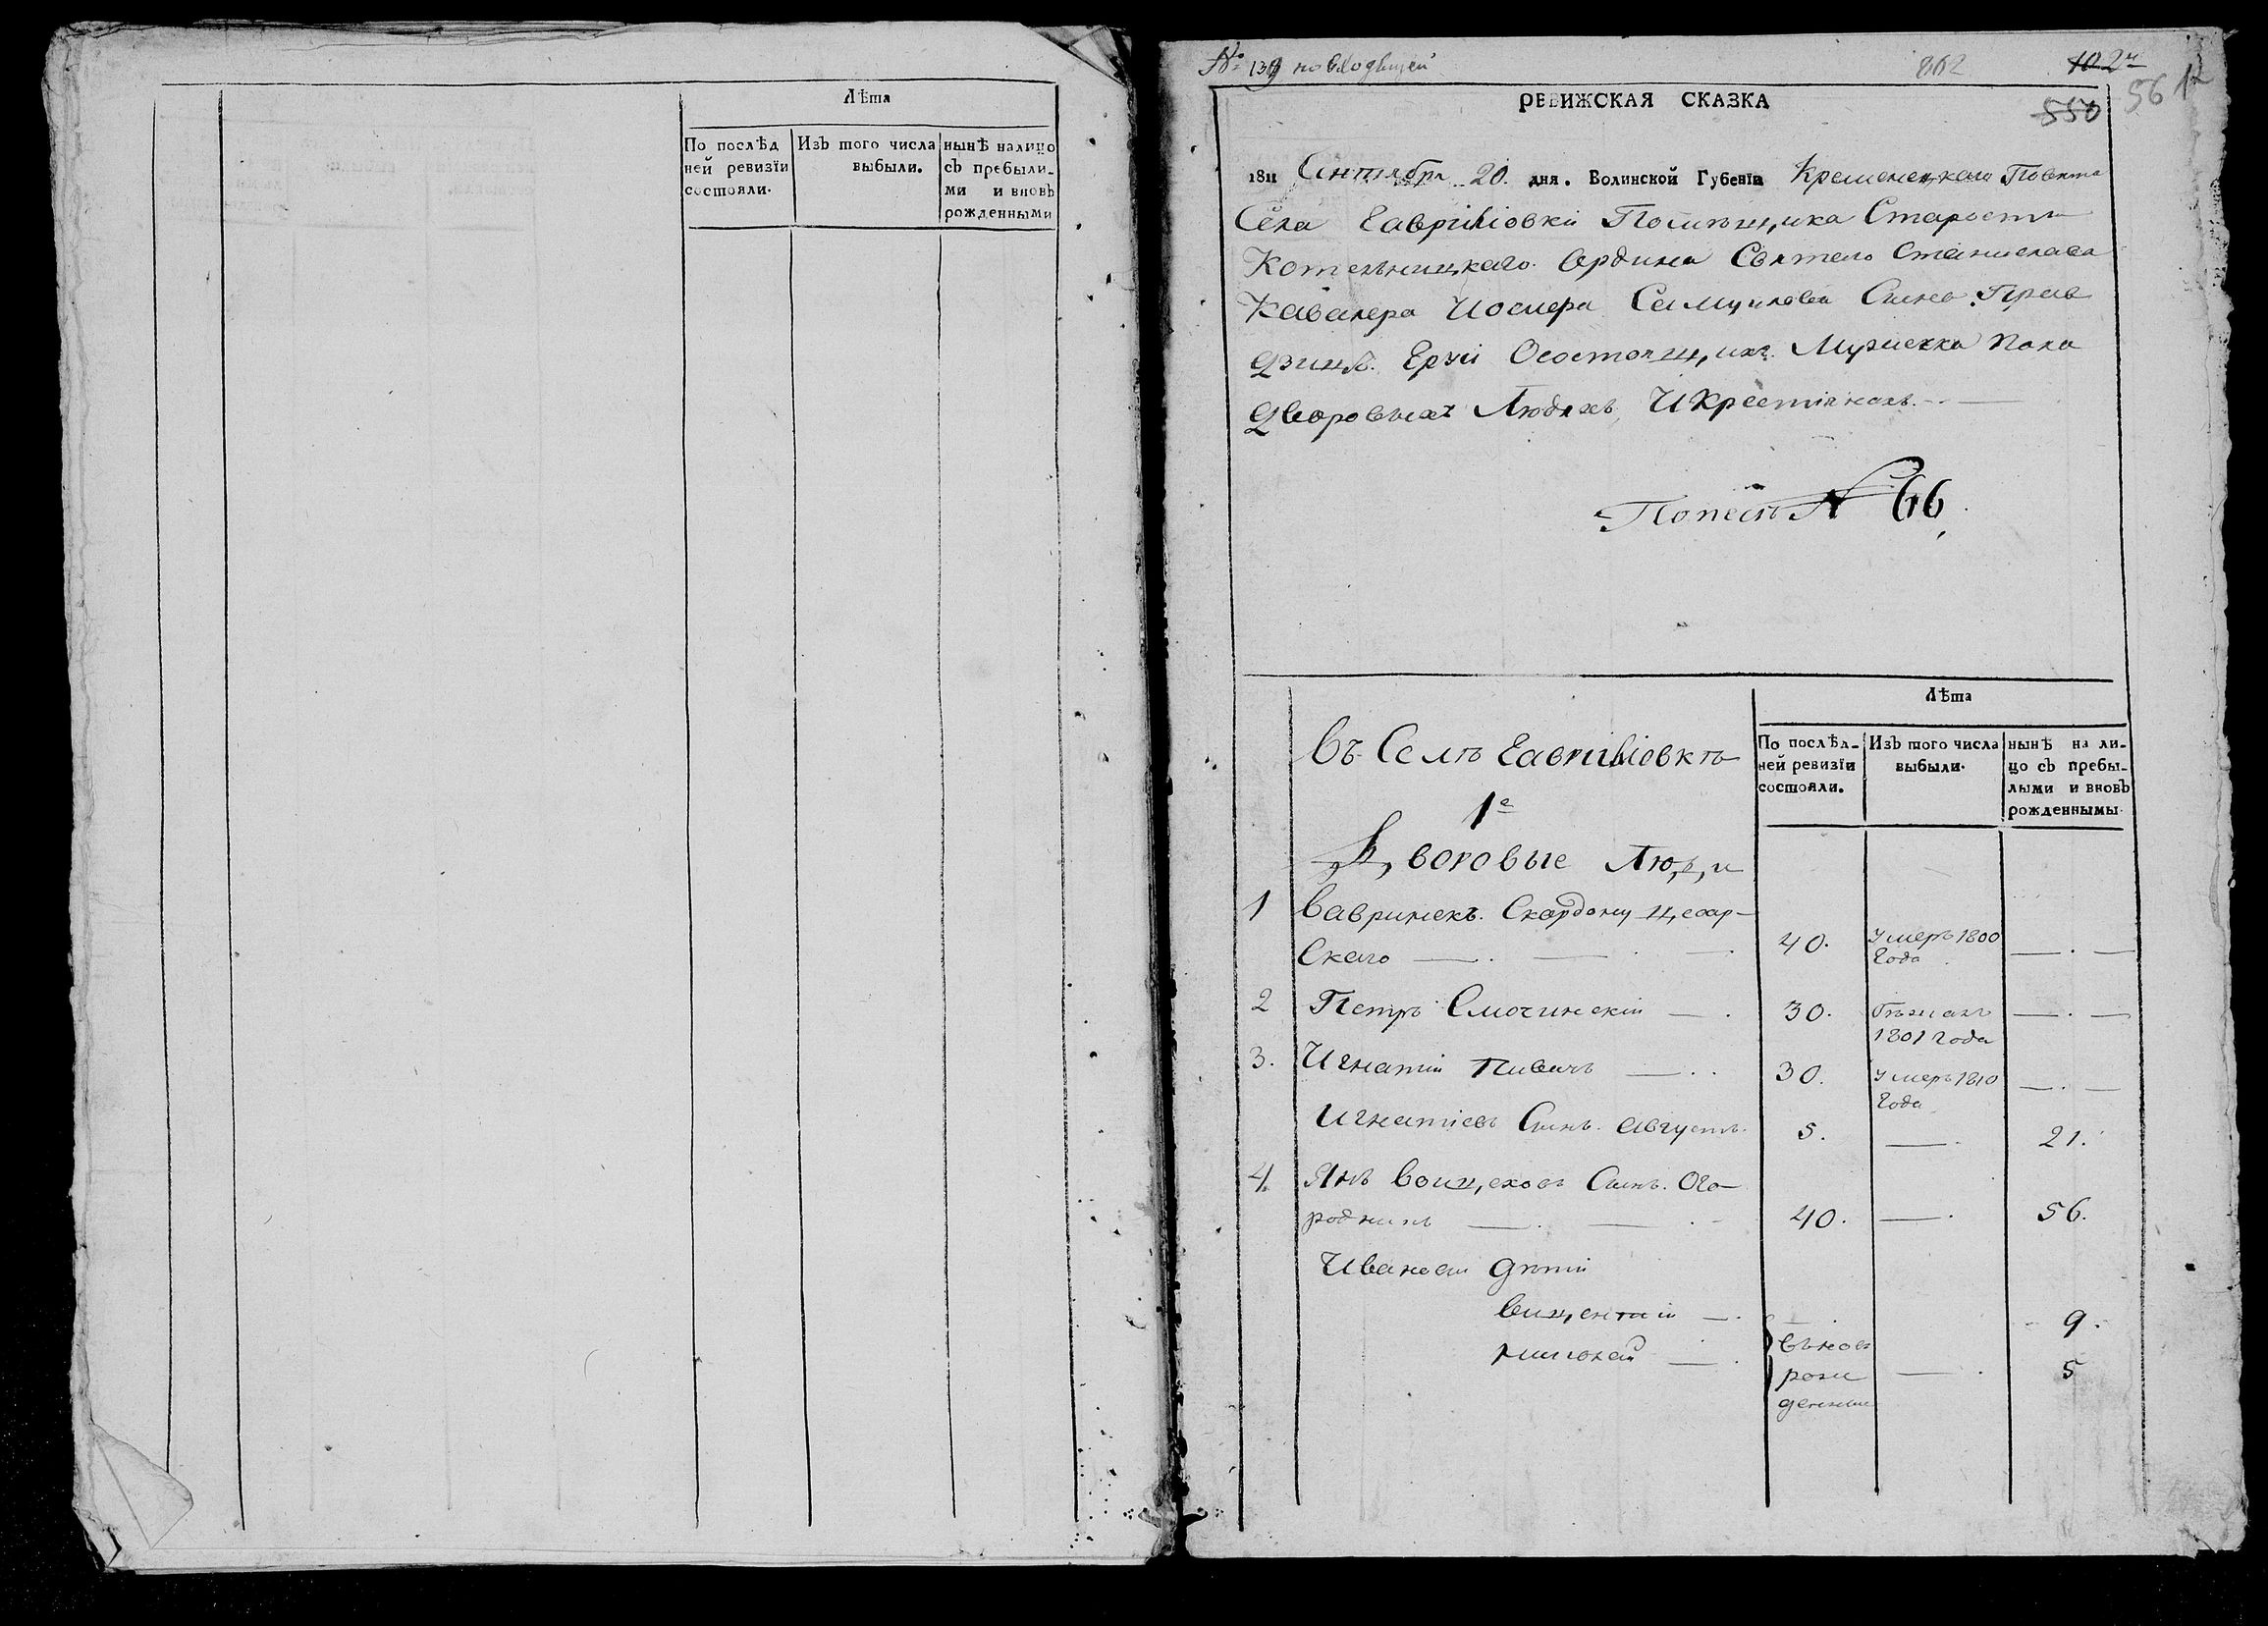 Лѣта
По послѣд
ней ревизїи
состояли.
Изъ того числа
выбыли.
нынѣ налицо
съ пребыли-
ми и вновь
рожденными
№ 139 по входящей
862
102
550
56
РЕВИЖСКАЯ СКАЗКА
1811 Сентября 20. дня. Волинской Губенїи Кременецкаго Повѣта
Села Гавриліовки Помѣщика Старосты
Котельницкаго Ордина Святаго Станислава
Кавалера Сына
О состоящихъ Мужеска пола
дворовыхъ Людяхъ И Крестіянахъ.
№ 66
Лѣта
По послѣд-
ней ревизїи
состояли.
Изъ того числа
выбыли.
нынѣ на ли-
цо съ пребы-
лыми и вновь
рожденными
Въ Селѣ Гавриліовкѣ
1е
Дворовые Люди
1 Вавринекъ Цесар-
Скаго 40. Умеръ 1800
Года
2 Петръ Смочинскій 30. бѣжалъ
1801 Года
3. Игнатій Пивичъ 30. Умеръ 1810
Года
Игнатіевъ Сынъ Августъ 5. 21.
4 Янъ Войцеховъ Сынъ Ого-
родникъ 40. 56.
Ивановы дѣти
Винцентій 9.
въновь
5
рож
денные